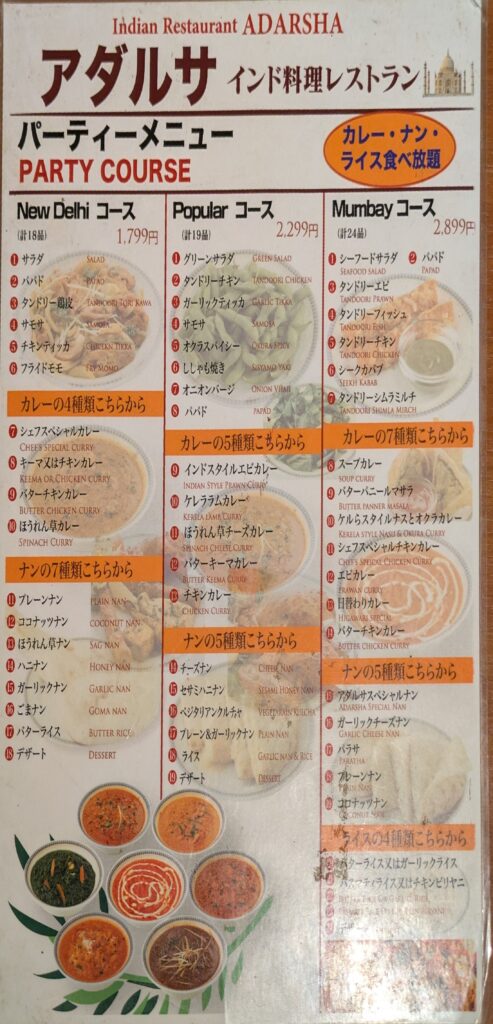 Indian Restaurant ADARSHA
アダルサ インド料理レストラン
パーティーメニュー
PARTY COURSE
カレー・ナン・
ライス食べ放題
New Delhi コース
(計18品) 1,799円
1 サラダ SALAD
2 パパド PAPAD
3 タンドリー鶏皮 TANDOORI TORI KAWA
4 サモサ SAMOSA
5 チキンティッカ CHICKEN TIKKA
6 フライドモモ FRY MOMO
カレーの4種類こちらから
7 シェフスペシャルカレー
CHEF'S SPECIAL CURRY
8 キーマ又はチキンカレー
KEEMA OR CHICKEN CURRY
9 バターチキンカレー
BUTTER CHICKEN CURRY
10 ほうれん草カレー
SPINACH CURRY
ナンの7種類こちらから
11 プレーンナン PLAIN NAN
12 ココナッツナン COCONUT NAN
13 ほうれん草ナン SAG NAN
14 ハニナン HONEY NAN
15 ガーリックナン GARLIC NAN
16 ごまナン GOMA NAN
17 バターライス BUTTER RICE
18 デザート DESSERT
Popular コース
(計19品) 2,299円
1 グリーンサラダ GREEN SALAD
2 タンドリーチキン TANDOORI CHICKEN
3 ガーリックティッカ GARLIC TIKKA
4 サモサ SAMOSA
5 オクラスパイシー OKURA SPICY
6 ししゃも焼き SISYAMO YAKI
7 オニオンバージ ONION VHAJI
8 パパド PAPAD
カレーの5種類こちらから
9 インドスタイルエビカレー
INDIAN STYLE PRAWN CURRY
10 ケレララムカレー
KERELA LAMB CURRY
11 ほうれん草チーズカレー
SPINACH CHEESE CURRY
12 バターキーマカレー
BUTTER KEEMA CURRY
13 チキンカレー
CHICKEN CURRY
ナンの5種類こちらから
14 チーズナン CHEESE NAN
15 セサミハニナン SESAMI HONEY NAN
16 ベジタリアンクルチャ VEGETARIAN KULCHA
17 プレーン&ガーリックナン PLAIN NAN
18 ライス GARLIC NAN & RICE
19 デザート DESSERT
Mumbay コース
(計24品) 2,899円
1 シーフードサラダ 2 パパド
SEAFOOD SALAD PAPAD
3 タンドリーエビ
TANDOORI PRAWN
4 タンドリーフィッシュ
TANDOORI FISH
5 タンドリーチキン
TANDOORI CHICKEN
6 シークカバブ
SEEKH KABAB
7 タンドリーシムラミルチ
TANDOORI SHIMLA MIRCH
カレーの7種類こちらから
8 スープカレー
SOUP CURRY
9 バターパニールマサラ
BUTTER PANNER MASALA
10 ケルらスタイルナスとオクラカレー
KERELA STYLE NASU & OKURA CURRY
11 シェフスペシャルチキンカレー
CHEF'S SPECIAL CHICKEN CURRY
12 エビカレー
PRAWAN CURRY
13 日替わりカレー
HIGAWARI SPECIAL
14 バターチキンカレー
BUTTER CHICKEN CURRY
ナンの5種類こちらから
15 アダルサスペシャルナン
ADARSHA SPECIAL NAN
16 ガーリックチーズナン
GARLIC CHEESE NAN
17 パラサ
PARATHA
18 プレーンナン
PLAIN NAN
ココナッツナン
COCONUT NAN
ライスの4種類こちらから
バターライス又はガーリックライス
バスマティライス又はチキンビリヤニ